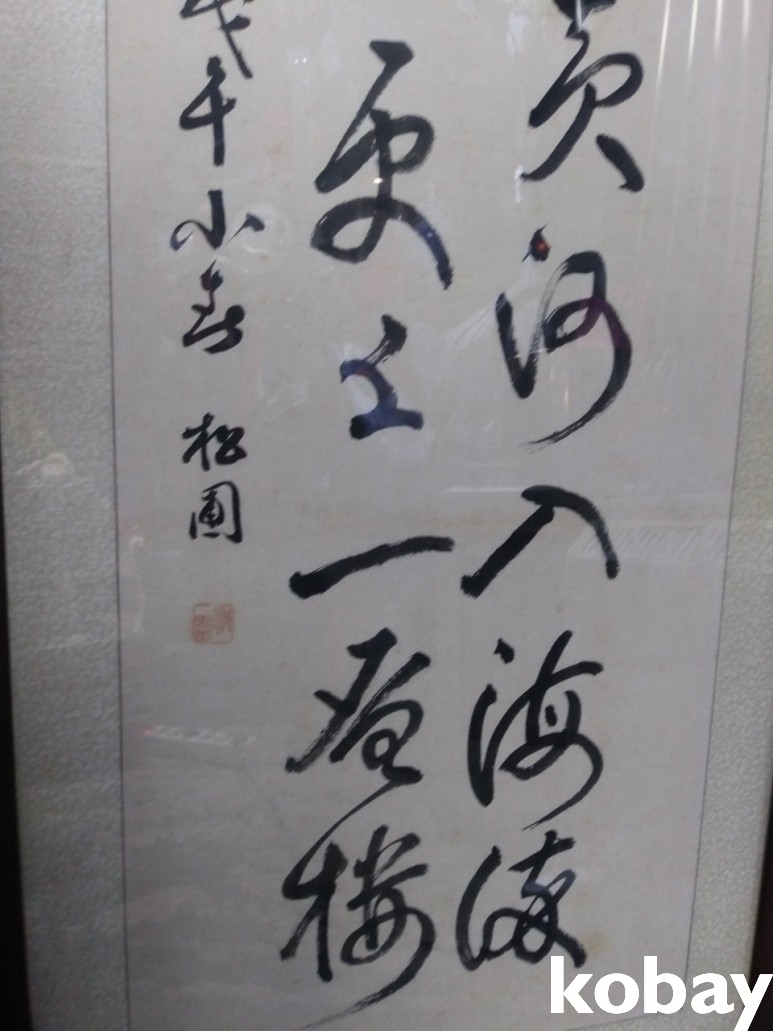 黄河入海流
更上一層樓
戊午小春 松圃
kobay